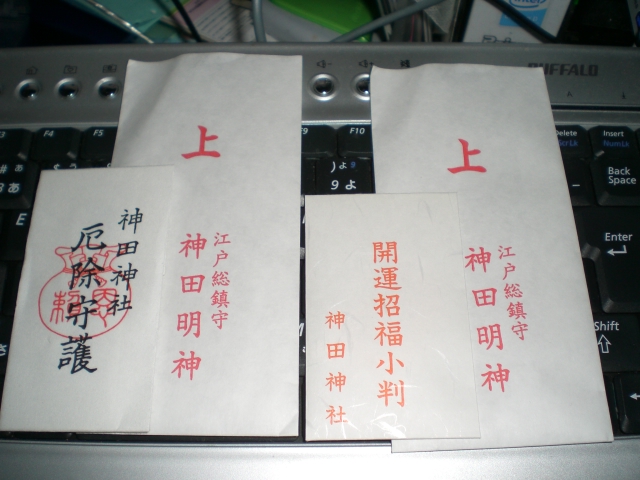 神田神社
厄除守護
上
江戸総鎮守
神田明神
開運招福小判
神田神社
上
江戸総鎮守
神田明神
BUFFALO
intel
F4
F5
F9
F10
Delete
ScrLk
Insert
NumLk
Back
Space
Enter
Shift
)
9
よ
E